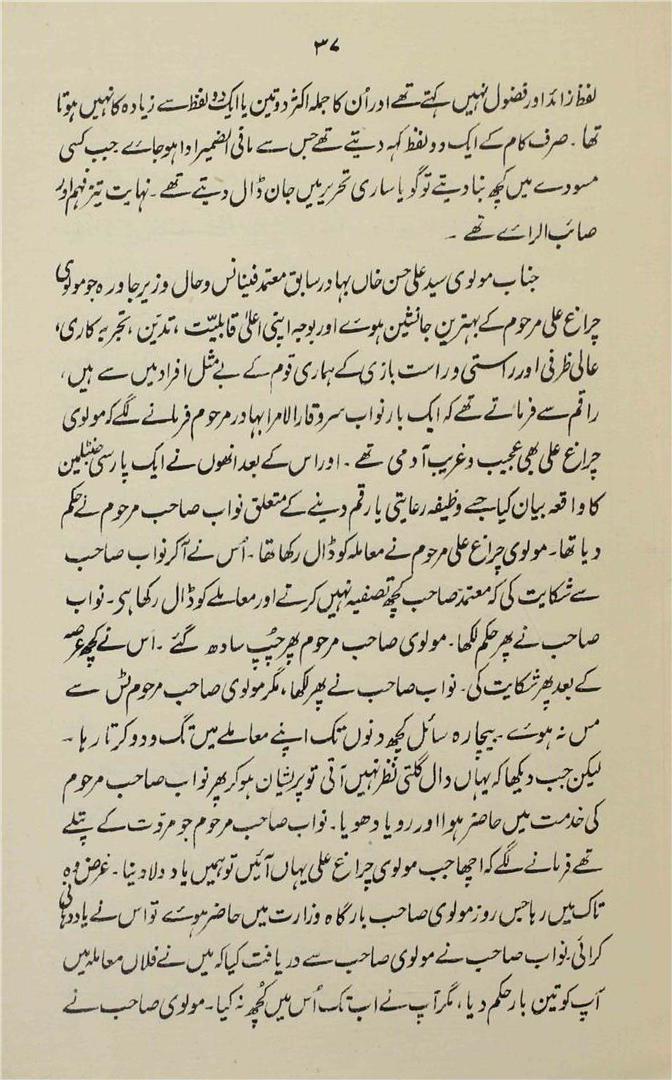 ۳۷
لفظ زائد اور فضول نہیں کہتے تھے اور اُن کا جملہ اکثر دو تین یا ایک دو لفظ سے زیادہ کا نہیں ہوتا
تھا۔ صرف کام کے ایک دو لفظ کہہ دیتے تھے جس سے مافی الضمیر ادا ہو جاے جب کسی
مسودے میں کچھ بنا دیتے تو گویا ساری تحریر میں جان ڈال دیتے تھے۔ نہایت تیز فہم اور
صائب الراے تھے ۔
جناب مولوی سید علی حسن خاں بہادر سابق معتمد فینانس و حال وزیر جاورہ جو مولوی
چراغ علی مرحوم کے بہترین جانشین ہوے اور بوجہ اپنی اعلیٰ قابلیّت ، تدیّن ، تجربہ کاری،
عالی ظرفی اور راستی و راست بازی کے ہماری قوم کے بے مثل افراد میں سے ہیں،
راقم سے فرماتے تھے کہ ایک بار نواب سر وقار الامرا بہادر مرحوم فرمانے لگے کہ مولوی
چراغ علی بھی عجیب و غریب آدمی تھے۔ اور اس کے بعد انھوں نے ایک پارسی جنٹلمین
کا واقعہ بیان کیا جسے وظیفہ رعایتی یا رقم دینے کے متعلق نواب صاحب مرحوم نے حکم
دیا تھا۔ مولوی چراغ علی مرحوم نے معاملہ کو ڈال رکھا تھا۔ اُس نے آکر نواب صاحب
سے شکایت کی کہ معتمد صاحب کچھ تصفیہ نہیں کرتے اور معاملے کو ڈال رکھا ہی۔ نواب
صاحب نے پھر حکم لکھا۔ مولوی صاحب مرحوم پھر چُپ سادھ گئے ۔ اس نے کچھ عرصہ
کے بعد پھر شکایت کی۔ نواب صاحب نے پھر لکھا، مگر مولوی صاحب مرحوم ٹس سے
مس نہ ہوے ۔ بیچارہ سائل کچھ دنوں تک اپنے معاملے میں تگ و دو کرتا رہا ۔
لیکن جب دیکھا کہ یہاں دال گلتی نظر نہیں آتی تو پریشان ہوکر پھر نواب صاحب مرحوم
کی خدمت میں حاضر ہوا اور رویا دھویا۔ نواب صاحب مرحوم جو مروّت کے پتلے
تھے فرمانے لگے کہ اچھا جب مولوی چراغ علی یہاں آئیں تو ہمیں یاد دلا دینا۔ غرض وہ
تاک میں رہا جس روز مولوی صاحب بارگاہ وزارت میں حاضر ہوے تو اس نے یاد دہانی
کرائی۔ نواب صاحب نے مولوی صاحب سے دریافت کیا کہ میں نے فلاں معاملہ میں
آپ کو تین بار حکم دیا، مگر آپ نے اب تک اُس میں کُچھ نہ کیا۔ مولوی صاحب نے